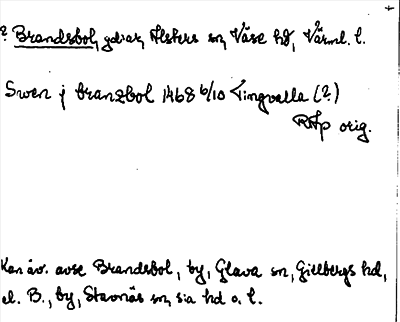 ? Brandsbol, gdiar, Alsters sn, Väse hd, Värml. l.
Swen j branzbol 1468 6/10 Tingvalla (?)
RAp orig.
Kan äv. avse Brandsbol, by, Glava sn, Gillbergs hd,
el. B., by, Stavnäs sn, sia hd o. l.